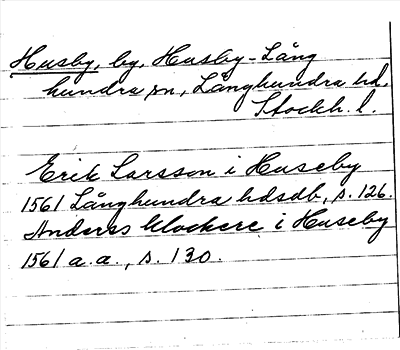 Husby, by, Husby-Lång
hundra sn, Långhundra hd,
Stockh. l.
Erik Larsson i Huseby
1561 Långhundra hdsdb, s. 126.
Anders klockere i Huseby
1561 a.a., s. 130.